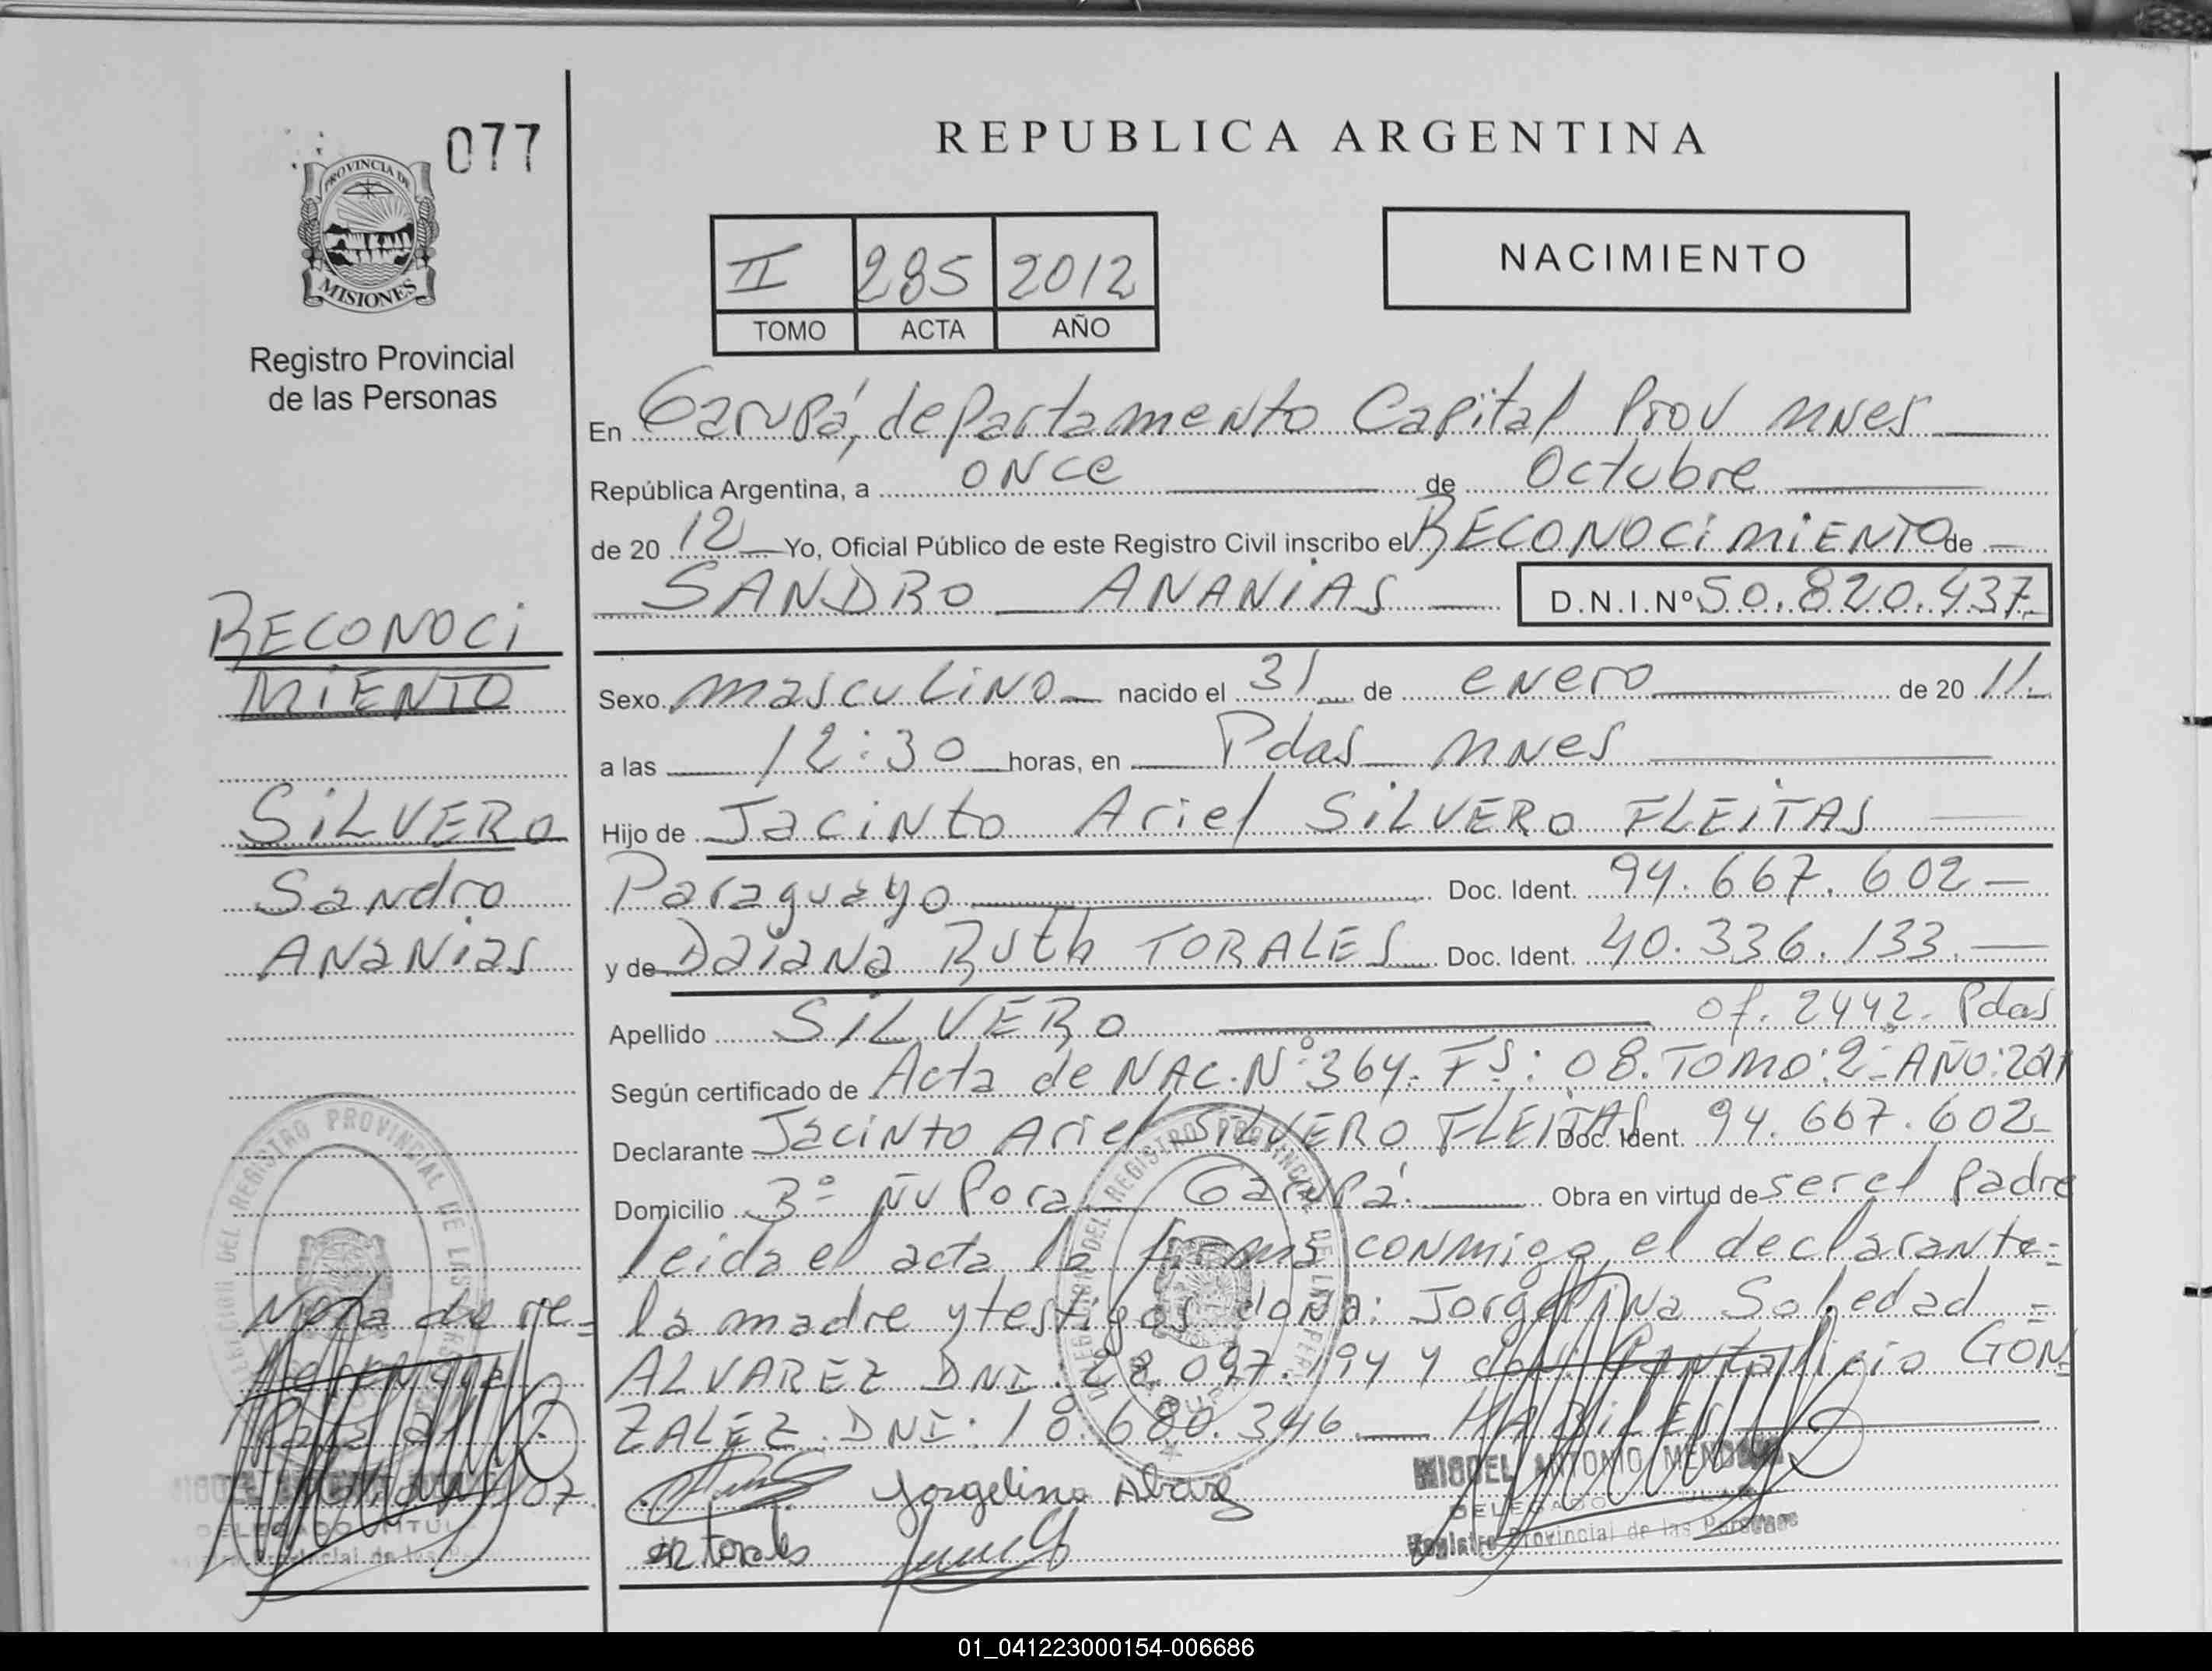 077
PROVINCIA DE
MISIONES
Registro Provincial
de las Personas
RECONOCI
MIENTO
SILVERO
Sandro
ANANIAS
Nota de re-
REPUBLICA ARGENTINA
II 285 2012
TOMO ACTA AÑO
NACIMIENTO
En Garupá, departamento Capital Prov mnes
República Argentina, a once de Octubre
de 20 12 Yo, Oficial Público de este Registro Civil inscribo el RECONOCIMIENTO de
SANDRO ANANIAS D.N.I.Nº 50.820.437
Sexo masculino nacido el 31 de enero de 20 11
a las 12:30 horas, en Pdas mnes
Hijo de Jacinto Ariel SILVERO FLEITAS
Paraguayo Doc. Ident. 94.667.602
y de Daiana Ruth TORALES Doc. Ident. 40.336.133
Apellido SILVERO of. 2442. Pdas
Según certificado de Acta de NAC. Nº 364. Fs: 08. TOMO: 2= AÑO:
Declarante Jacinto Ariel SILVERO FLEITAS Doc. Ident. 94.667.602
Domicilio 3º Ñu Pora Garupá. Obra en virtud de ser el padre
leida el acta la firma conmigo el declarante=
la madre y testigos doña: Jorgelina Soledad =
ALVAREZ DNI: 097.194 y don: Pantalicio GON
ZALEZ. DNI: 18.680.346. HABILES
Jorgelina Alvarez
Torales
MIGUEL ANTONIO
DELEGADO
Registro Provincial de las Personas
01_041223000154-006686